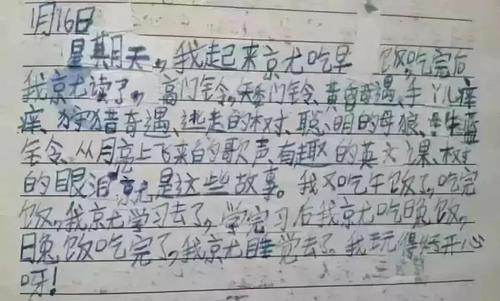 1月16日
星期天,我起来京尤吃早饭,吃完后
我京尤读了,高门铃,矮门铃、黄昏奇遇、手 儿痒
痒、狩猎奇遇、逃走的树、聪、明的母狼、
年令、从月亮上飞来白的歌声、有趣的英文课、树
的眼泪京尤是这些故事。我又吃午饭了,吃完
饭,我京尤学习去了,学完习后我京尤吃晚饭,
日免饭吃完了,我京尤睡觉去了我玩得特开心
呀!